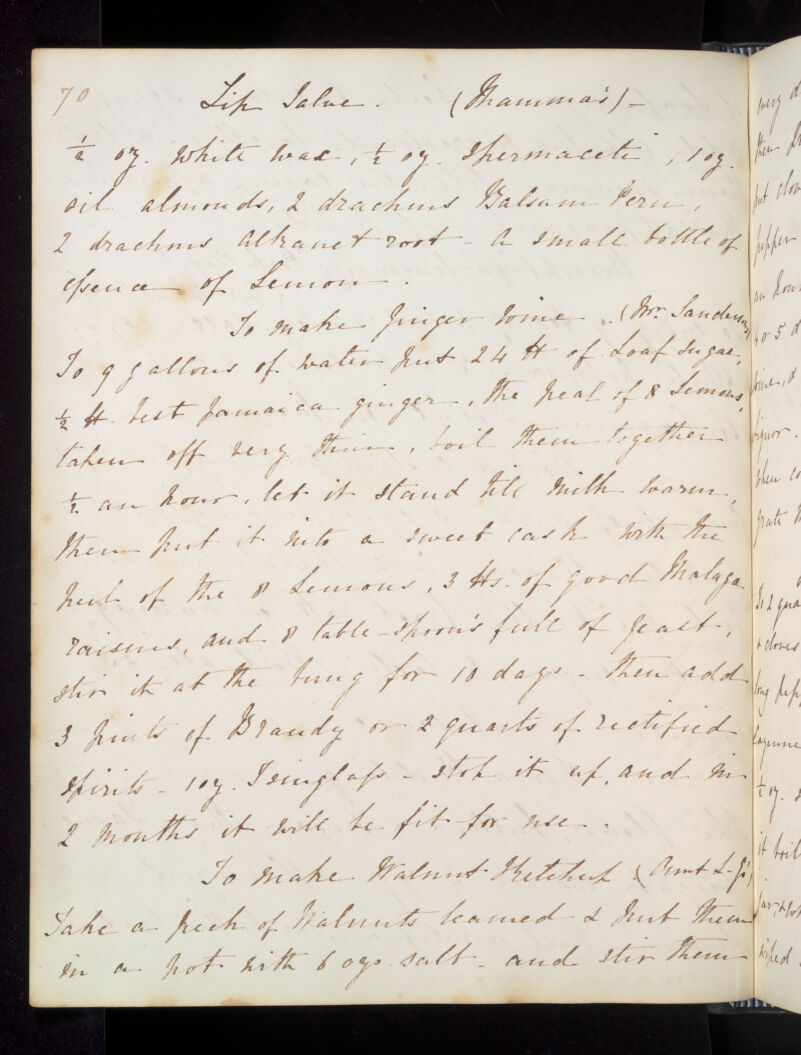 70
Lip Salve. (Mamma's) -
½ oz. White wax, ½ oz. Spermaceti, 1 oz.
oil almonds, 2 drachms Balsam Peru,
2 drachms alkanet root - a small bottle of
essence of Lemon.
To make Ginger Wine. (Mr. Sanderson)
To 9 gallons of water put 24 lb of Loaf Sugar,
½ lb. best Jamaica ginger, the peal of 8 Lemons,
taken off very thin, boil them together
½ an hour, let it stand till milk warm,
then put it into a sweet cask with the
of the 8 Lemons, 3 lbs. of good Malaga
raisins, and 8 table-spoon's full of yeast,
stir it at the bung for 10 days - then add
3 pints of Brandy or 2 quarts of rectified
spirits - 1 oz. Isinglass - stop it up, and in
2 months it will be fit for use.
To make Walnut Ketchup (Aunt
Take a peck of Walnuts & put them
in a pot with 6 ozs salt - and stir them
very
then
put
pepper
an hour
4 or 5
liquor.
when
grate
To 2
cloves
long
cayenne
½ oz.
it boil